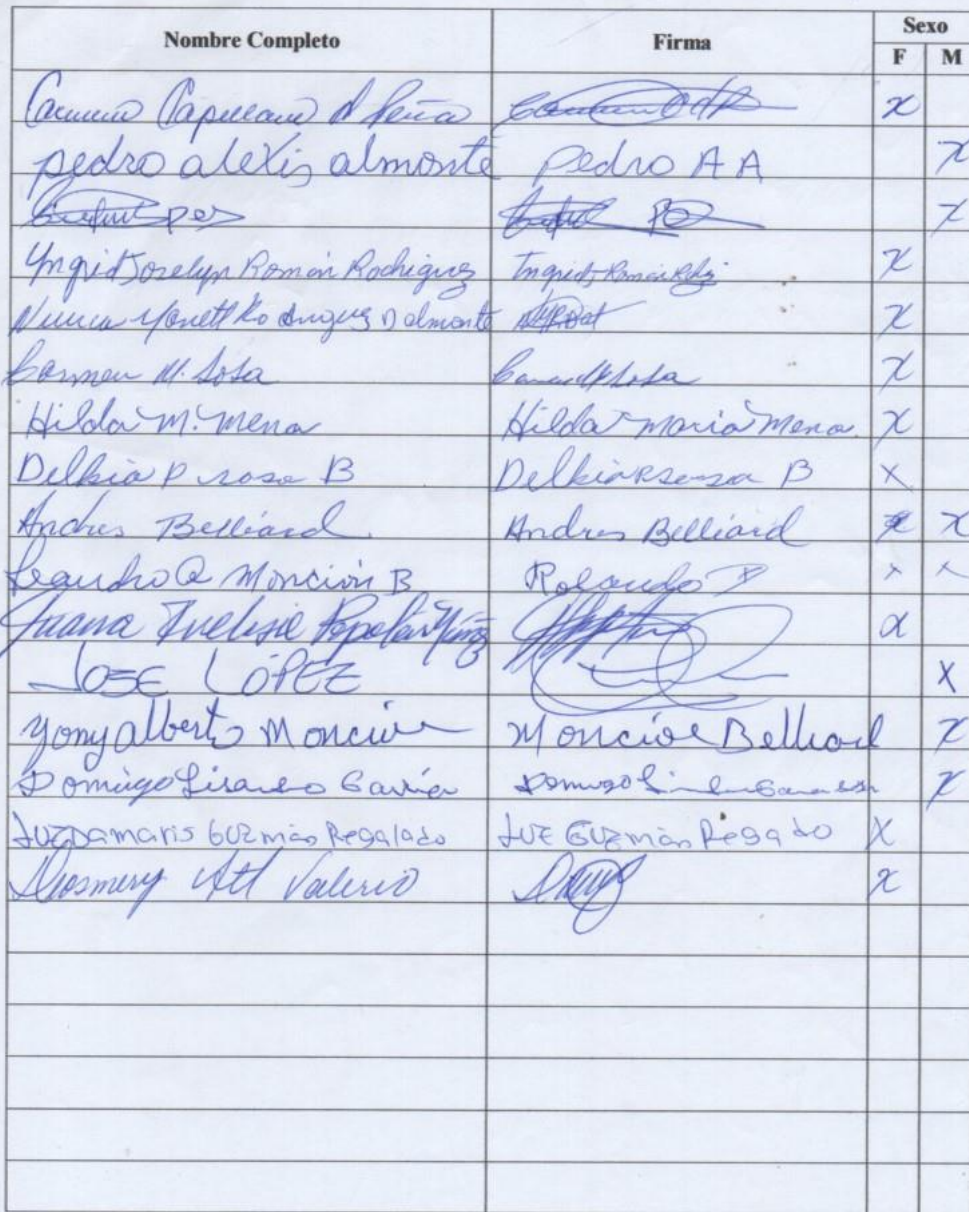 Nombre Completo Firma Sexo
F M
Capellan d Peña x
pedro alexis almonte pedro A A x
x
Yngrid Joselyn Román Rodriguez x
Yanett Rodriguez D almonte x
Carmen M. Sosa x
Hilda M. Mena Hilda Maria Mena x
Delkia P rosa B Delkia B x
Andres Belliard Andres Belliard x x
Leandro Moncion B Rolando x x
Juana x
JOSE LÓPEZ X
Yony alberto Moncion Moncion Belliard x
Domingo Lisandro Garcia Domingo x
Luz Damaris Guzmán Regalado Luz Guzmán Regado X
Diosmery Valerio x